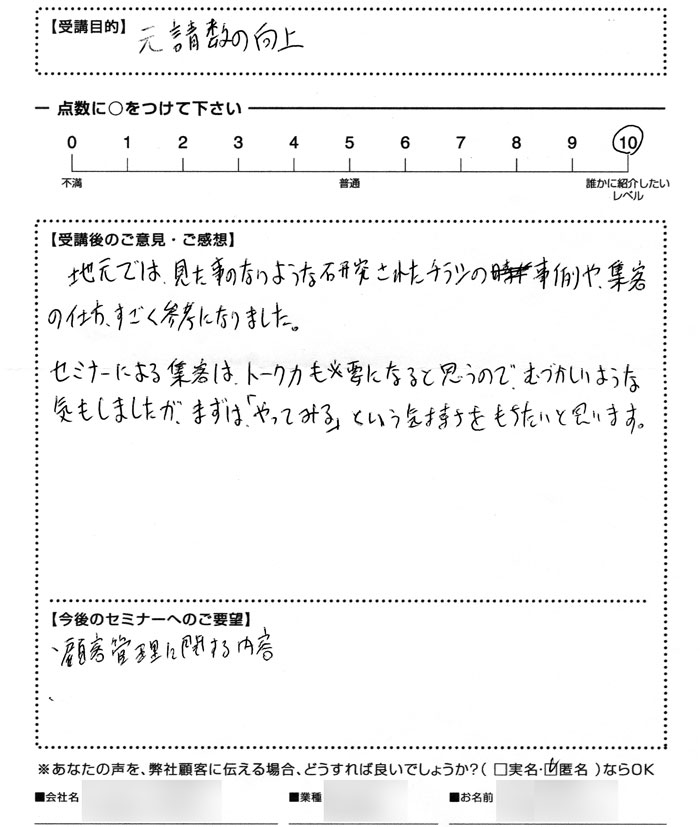 【受講目的】 元請数の向上
点数に○をつけて下さい
0 1 2 3 4 5 6 7 8 9 10
不満 普通 誰かに紹介したい
レベル
【受講後のご意見・ご感想】
地元では、見た事のないような研究されたチラシの事例や、集客
の仕方、すごく参考になりました。
セミナーによる集客は、トーク力も必要になると思うので、むづかしいような
気もしましたが、まずは、「やってみる」という気持ちをもちたいと思います。
【今後のセミナーへのご要望】
、顧客管理に関する内容
、
※あなたの声を、弊社顧客に伝える場合、どうすれば良いでしょうか？( □実名・☑匿名 )ならOK
■会社名 ■業種 ■お名前